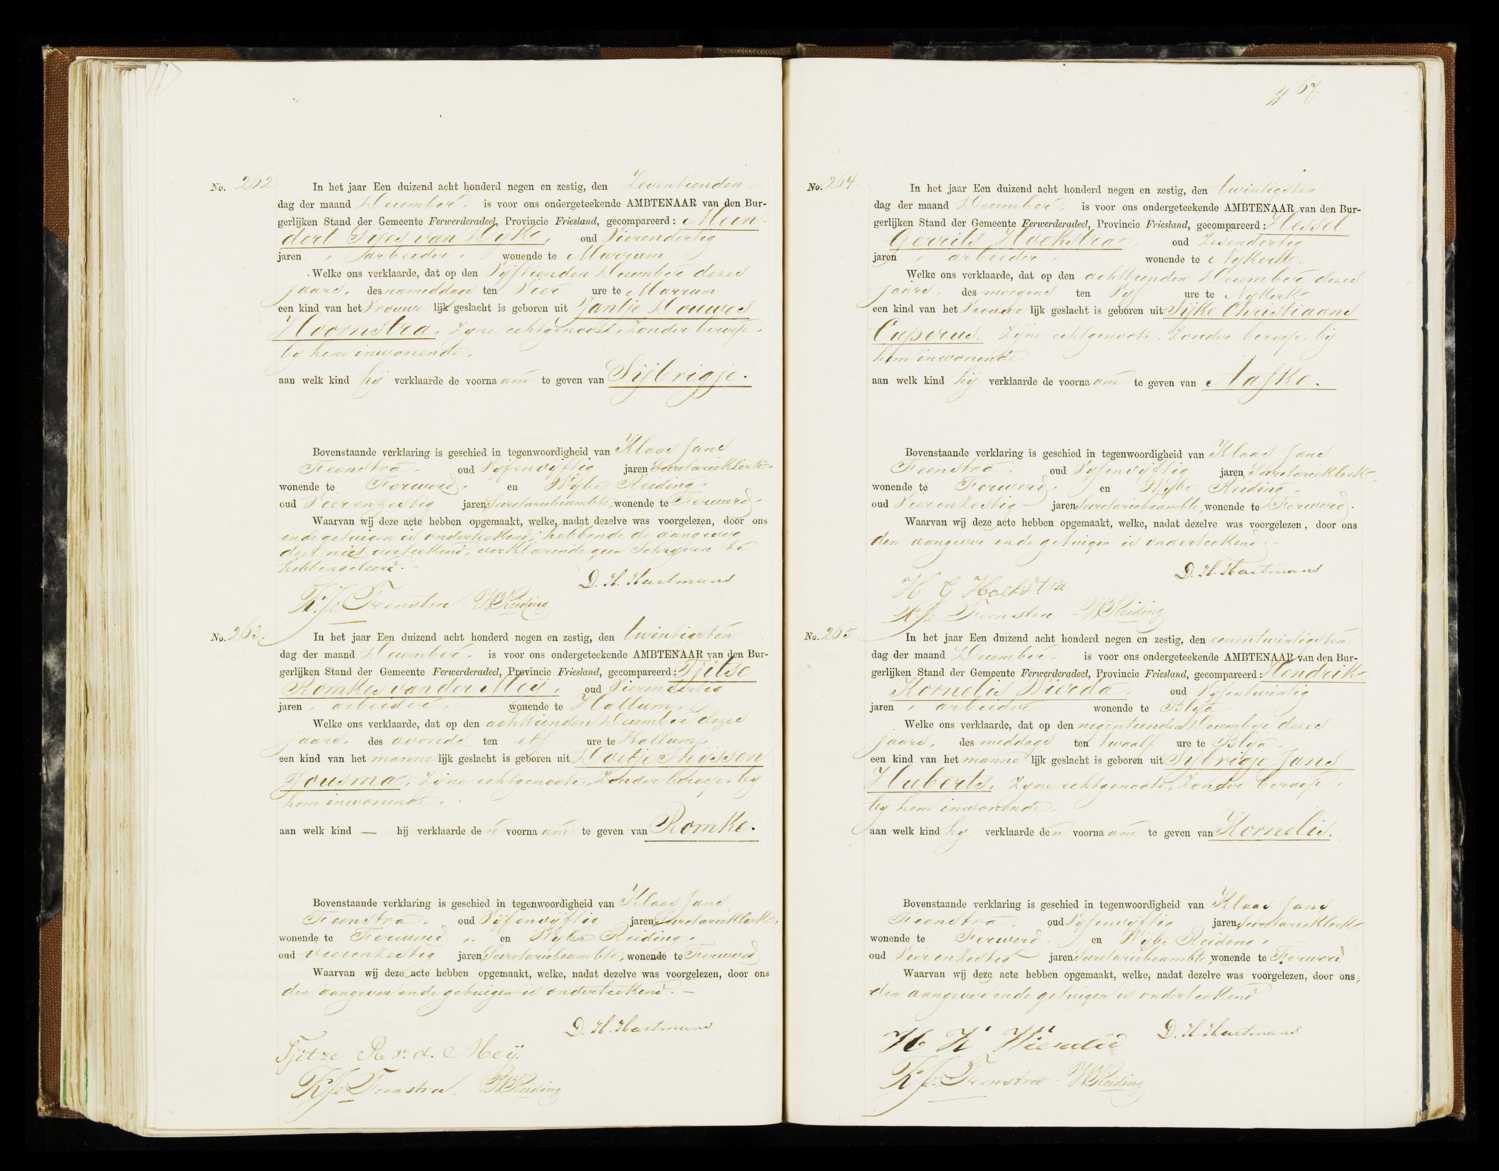 No. 262
In het jaar Een duizend acht honderd negen en zestig, den Zeventienden
dag der maand December. is voor ons ondergeteekende AMBTENAAR van den Bur-
gerlijken Stand der Gemeente Ferwerderadeel, Provincie Friesland, gecompareerd: Mein-
dert Sires van Dijk, oud Vierendertig
jaren, arbeider, wonende te Marrum
Welke ons verklaarde, dat op den Vijftienden December dezes
jaars, des namiddags ten Vier ure te Marrum
een kind van het Vrouwe lijk geslacht is geboren uit Jantje Douwes
Hoornstra, Zijne echtgenoote, Zonder beroep,
by hem inwonende.
aan welk kind hij verklaarde de voornaam te geven van Sijbrigje.
Bovenstaande verklaring is geschied in tegenwoordigheid van Klaas Jans
Feenstra. oud Vijfenvijftig jaren Secretarieklerk,
wonende te Ferwerd, en Wybe Reiding,
oud Vierenzestig jaren Secretariebeambte, wonende te Ferwerd.
Waarvan wij deze acte hebben opgemaakt, welke, nadat dezelve was voorgelezen, door ons
ende getuigen is onderteekend, hebbende de aangever
deze niet onderteekend, verklarende geen schrijven te
hebben geleerd.
D. H. Hartmans
K. Js. Feenstra W Reiding
No. 263
In het jaar Een duizend acht honderd negen en zestig, den twintigsten
dag der maand December. is voor ons ondergeteekende AMBTENAAR van den Bur-
gerlijken Stand der Gemeente Ferwerderadeel, Provincie Friesland, gecompareerd: Tjitse
Romkes van der Meij, oud
jaren, arbeider, wonende te Hallum,
Welke ons verklaarde, dat op den achttienden December dezes
jaars, des avonds ten elf ure te Hallum,
een kind van het manne lijk geslacht is geboren uit Thijssen
Tousma, Zijne echtgenoote, Zonder beroep, by
hem inwonende.
aan welk kind — hij verklaarde de voornaam te geven van Romke.
Bovenstaande verklaring is geschied in tegenwoordigheid van Klaas Jans
Feenstra. oud Vijfenvijftig jaren, Secretarieklerk,
wonende te Ferwerd en Wybe Reiding,
oud Vierenzestig jaren Secretariebeambte, wonende te Ferwerd
Waarvan wij deze acte hebben opgemaakt, welke, nadat dezelve was voorgelezen, door ons
den aangever ende getuigen is onderteekend. —
D. H. Hartmans
Tjitze R. v. d. Meij.
K. Js. Feenstra. W Reiding
67.
No. 264.
In het jaar Een duizend acht honderd negen en zestig, den twintigsten
dag der maand December. is voor ons ondergeteekende AMBTENAAR van den Bur-
gerlijken Stand der Gemeente Ferwerderadeel, Provincie Friesland, gecompareerd: Hessel
Gerrits Hoekstra, oud Zesendertig
jaren, arbeider, wonende te Nijkerk.
Welke ons verklaarde, dat op den achttienden December dezes
jaars, des morgens ten Vijf ure te Nijkerk
een kind van het Vrouwe lijk geslacht is geboren uit Sijtke Christiaans
Casperus, Zijne echtgenoote, Zonder beroep, by
hem inwonende.
aan welk kind hij verklaarde de voornaam te geven van Aafke.
Bovenstaande verklaring is geschied in tegenwoordigheid van Klaas Jans
Feenstra. oud Vijfenvijftig jaren, Secretarieklerk,
wonende te Ferwerd, en Wybe Reiding,
oud Vierenzestig jaren Secretariebeambte, wonende te Ferwerd.
Waarvan wij deze acte hebben opgemaakt, welke, nadat dezelve was voorgelezen, door ons
den aangever ende getuigen is onderteekend.
D. H. Hartmans
H G Hoekstra
K. Js. Feenstra W Reiding
No. 265
In het jaar Een duizend acht honderd negen en zestig, den eenentwintigsten
dag der maand December. is voor ons ondergeteekende AMBTENAAR van den Bur-
gerlijken Stand der Gemeente Ferwerderadeel, Provincie Friesland, gecompareerd: Hendrik
Kornelis Wierda, oud Vijfentwintig
jaren, arbeider wonende te Blija
Welke ons verklaarde, dat op den negentienden December dezes
jaars, des middags ten twaalf ure te Blija.
een kind van het manne lijk geslacht is geboren uit Sijbrigje Jans
Huberts, Zijne echtgenoote, Zonder beroep,
by hem inwonende.
aan welk kind hij verklaarde de voornaam te geven van Kornelis.
Bovenstaande verklaring is geschied in tegenwoordigheid van Klaas Jans
Feenstra. oud Vijfenvijftig jaren, Secretarieklerk,
wonende te Ferwerd. en Wybe Reiding,
oud Vierenzestig jaren Secretariebeambte, wonende te Ferwerd
Waarvan wij deze acte hebben opgemaakt, welke, nadat dezelve was voorgelezen, door ons,
den aangever ende getuigen is onderteekend
D. H. Hartmans
H. K. Wierda
K. Js. Feenstra. W Reiding